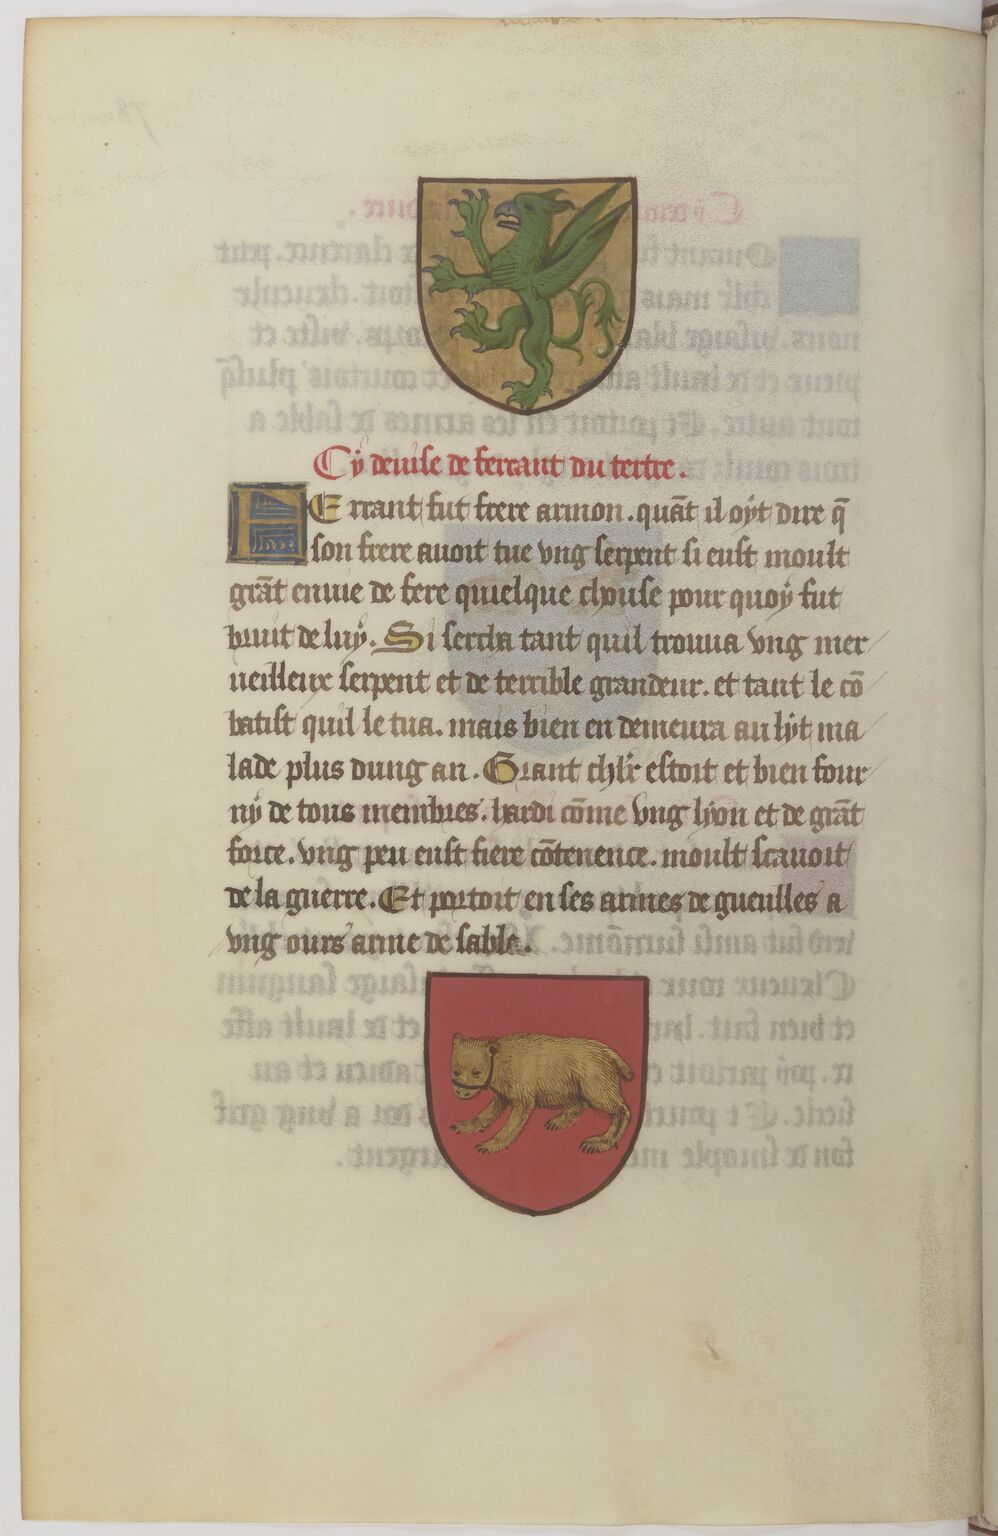 Cÿ deuise de ferrant du tertre.
FErrant fut frere armon. quāt il oÿt dire q̄
son frere auoit tue vng serpent si eust moult
grāt enuie de fere quelque chouse pour quoÿ fut
bruit de luÿ. Si sercha tant quil trouua vng mer
ueilleux serpent et de terrible grandeur. et tant le cō
batist quil le tua. mais bien en demeura au lÿt ma
lade plus dung an. Grant chlr̄ estoit et bien four
nÿ de tous membres. hardi cōme vng lÿon et de grāt
force. vng peu eust fiere cōtenence. moult scauoit
de la guerre. Et portoit en ses armes de gueulles a
vng ours arme de sable.